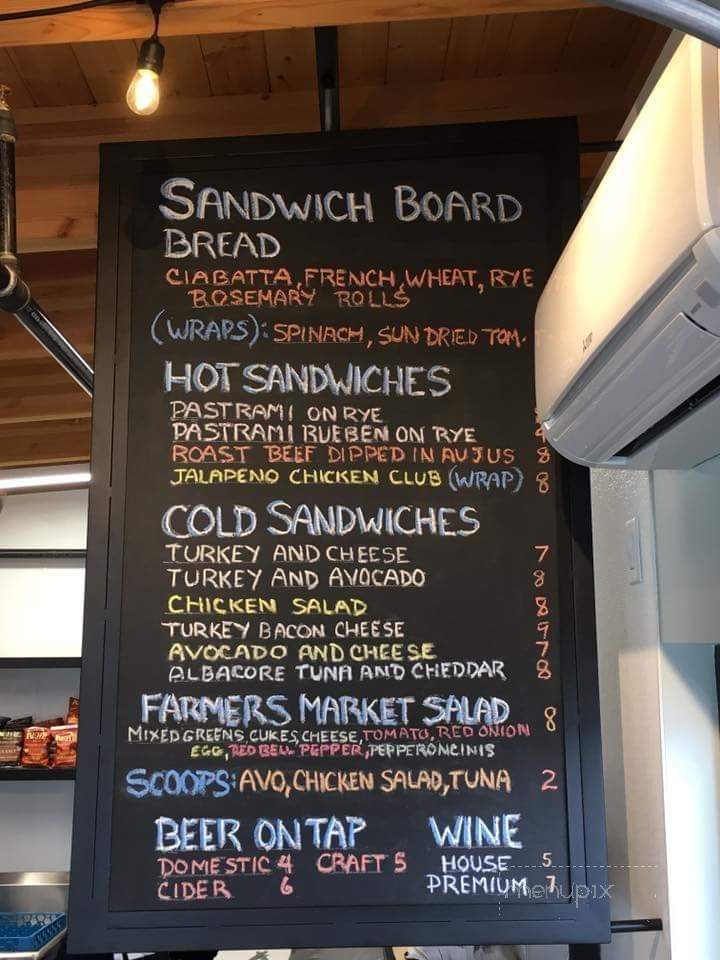 SANDWICH BOARD
BREAD
CIABATTA, FRENCH, WHEAT, RYE
ROSEMARY ROLLS
(WRAPS): SPINACH, SUN DRIED TOM.
HOT SANDWICHES
PASTRAMI ON RYE
PASTRAMI RUEBEN ON RYE
ROAST BEEF DIPPED IN AUJUS 8
JALAPENO CHICKEN CLUB (WRAP) 8
COLD SANDWICHES
TURKEY AND CHEESE 7
TURKEY AND AVOCADO 8
CHICKEN SALAD 8
TURKEY BACON CHEESE 9
AVOCADO AND CHEESE 7
ALBACORE TUNA AND CHEDDAR 8
FARMERS MARKET SALAD 8
MIXED GREENS, CUKES, CHEESE, TOMATO, RED ONION
EGG, RED BELL PEPPER, PEPPERONCINIS
SCOOPS: AVO, CHICKEN SALAD, TUNA 2
BEER ON TAP WINE
DOMESTIC 4 CRAFT 5 HOUSE 5
CIDER 6 PREMIUM 7
menupix